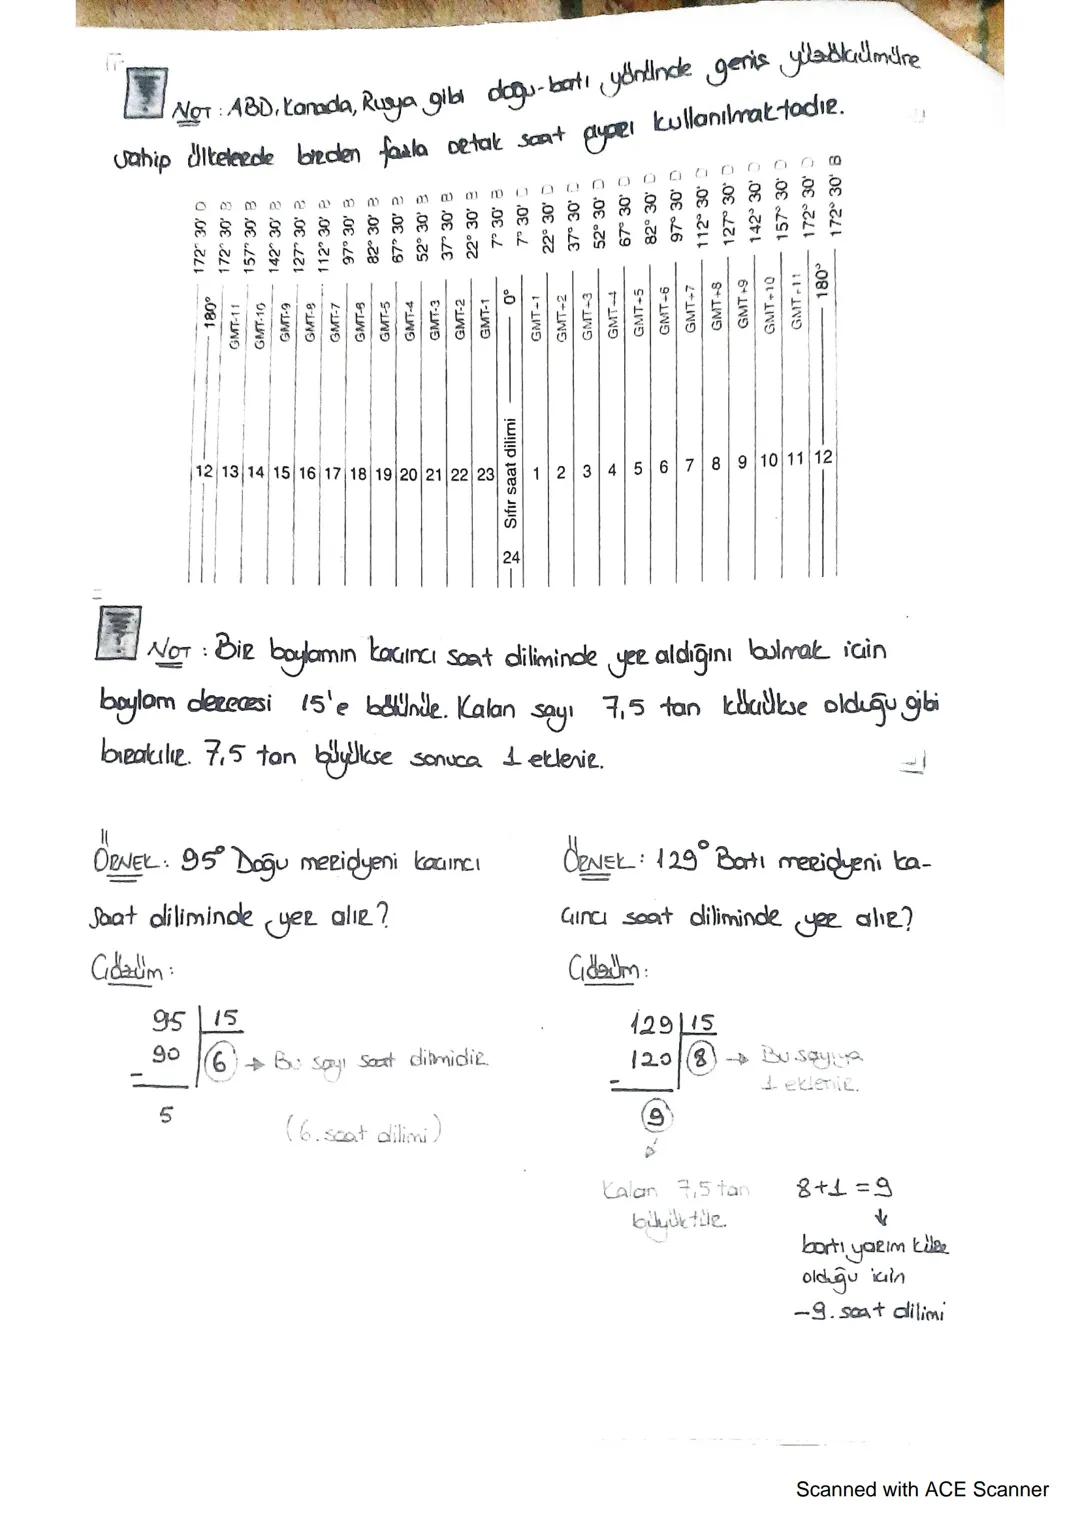 NOT : ABD, Kanada, Rusya gibi doğu-batı yönünde geniş yüzölçümüne
sahip ülkelerde birden fazla ortak saat ayarı kullanılmaktadır.
172° 30' D
172° 30' B
157° 30' B
142° 30' B
127° 30' B
112° 30' B
97° 30' B
82° 30' B
67° 30' B
52° 30' B
37° 30' B
22° 30' B
7° 30' B
7° 30' D
22° 30' D
37° 30' D
52° 30' D
67° 30' D
82° 30' D
97° 30' D
112° 30' D
127° 30' D
142° 30' D
157° 30' D
172° 30' D
172° 30' B
180°
GMT-11
GMT-10
GMT-9
GMT-8
GMT-7
GMT-6
GMT-5
GMT-4
GMT-3
GMT-2
GMT-1
0°
GMT+1
GMT+2
GMT+3
GMT+4
GMT+5
GMT+6
GMT+7
GMT+8
GMT+9
GMT+10
GMT+11
180°
12 13 14 15 16 17 18 19 20 21 22 23
24 Sıfır saat dilimi
1 2 3 4 5 6 7 8 9 10 11 12
NOT : Bir boylamın kaçıncı saat diliminde yer aldığını bulmak için
boylam derecesi 15'e bölünür. Kalan sayı 7,5 tan küçükse olduğu gibi
bırakılır. 7,5 tan büyükse sonuca 1 eklenir.
ÖRNEK : 95° Doğu meridyeni kaçıncı
saat diliminde yer alır?
Çözüm :
95 15
90 6 → Bu sayı saat dilimidir.
-
5
(6. saat dilimi)
ÖRNEK : 129° Batı meridyeni ka-
çıncı saat diliminde yer alır?
Çözüm :
129 15
120 8 → Bu sayıya
1 eklenir.
-
9
Kalan 7,5 tan
büyüktür.
8+1 = 9
batı yarım küre
olduğu için
-9. saat dilimi
Scanned with ACE Scanner